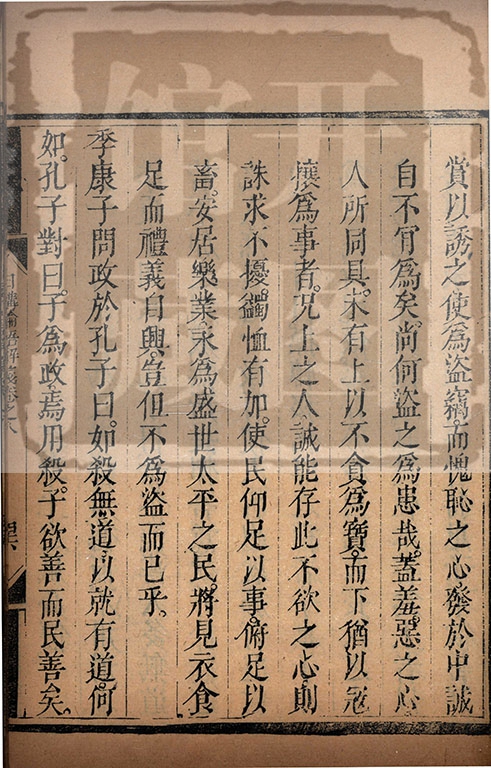 賞以誘之使爲盜竊而愧恥之心發於中誠
自不肯爲矣尚何盜之爲患哉。蓋羞惡之心
人所同具。未有上以不貪爲寶。而下猶以冦
攘爲事者。况上之人誠能存此不欲之心則
誅求不擾。蠲恤有加。使民仰足以事。俯足以
畜。安居樂業永爲盛世太平之民。將見衣食
足而禮義自興。豈但不爲盜而已乎。
季康子問政於孔子曰。如殺無道以就有道。何
如。孔子對曰。子爲政。焉用殺。子欲善而民善矣。